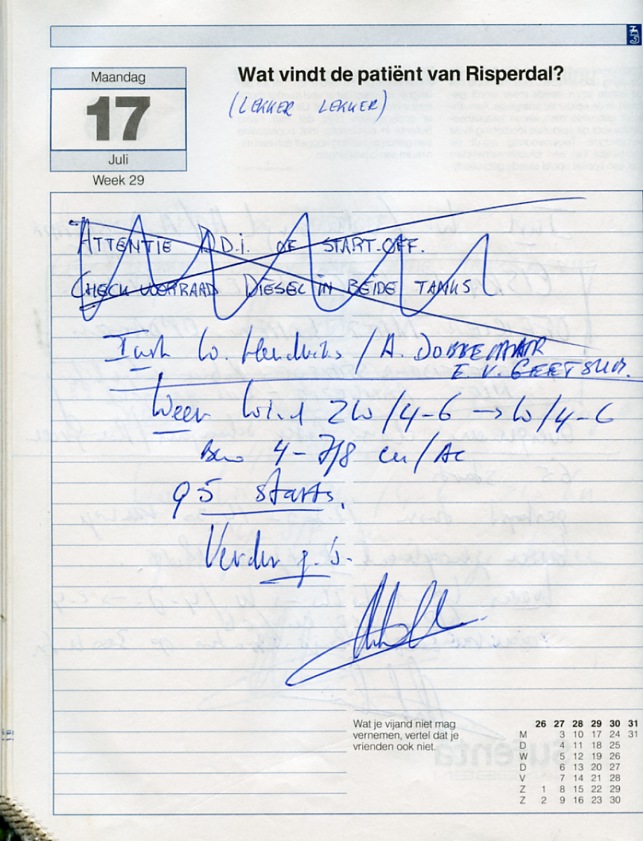 Maandag
17
Juli
Week 29
Wat vindt de patiënt van Risperdal?
(LEKKER LEKKER)
ATTENTIE A.D.i. OF START-OFF.
CHECK VOORRAAD DIESEL IN BEIDE TANKS.
Instr W. Hendriks / A. DOBBELAAR
E. V. GEETSUM.
Weer Wind ZW/4-6 → W/4-6
Bew 4-7/8 cu/Ac
95 starts.
Verder g.b.
Wat je vijand niet mag
vernemen, vertel dat je
vrienden ook niet.
26 27 28 29 30 31
M 3 10 17 24 31
D 4 11 18 25
W 5 12 19 26
D 6 13 20 27
V 7 14 21 28
Z 1 8 15 22 29
Z 2 9 16 23 30